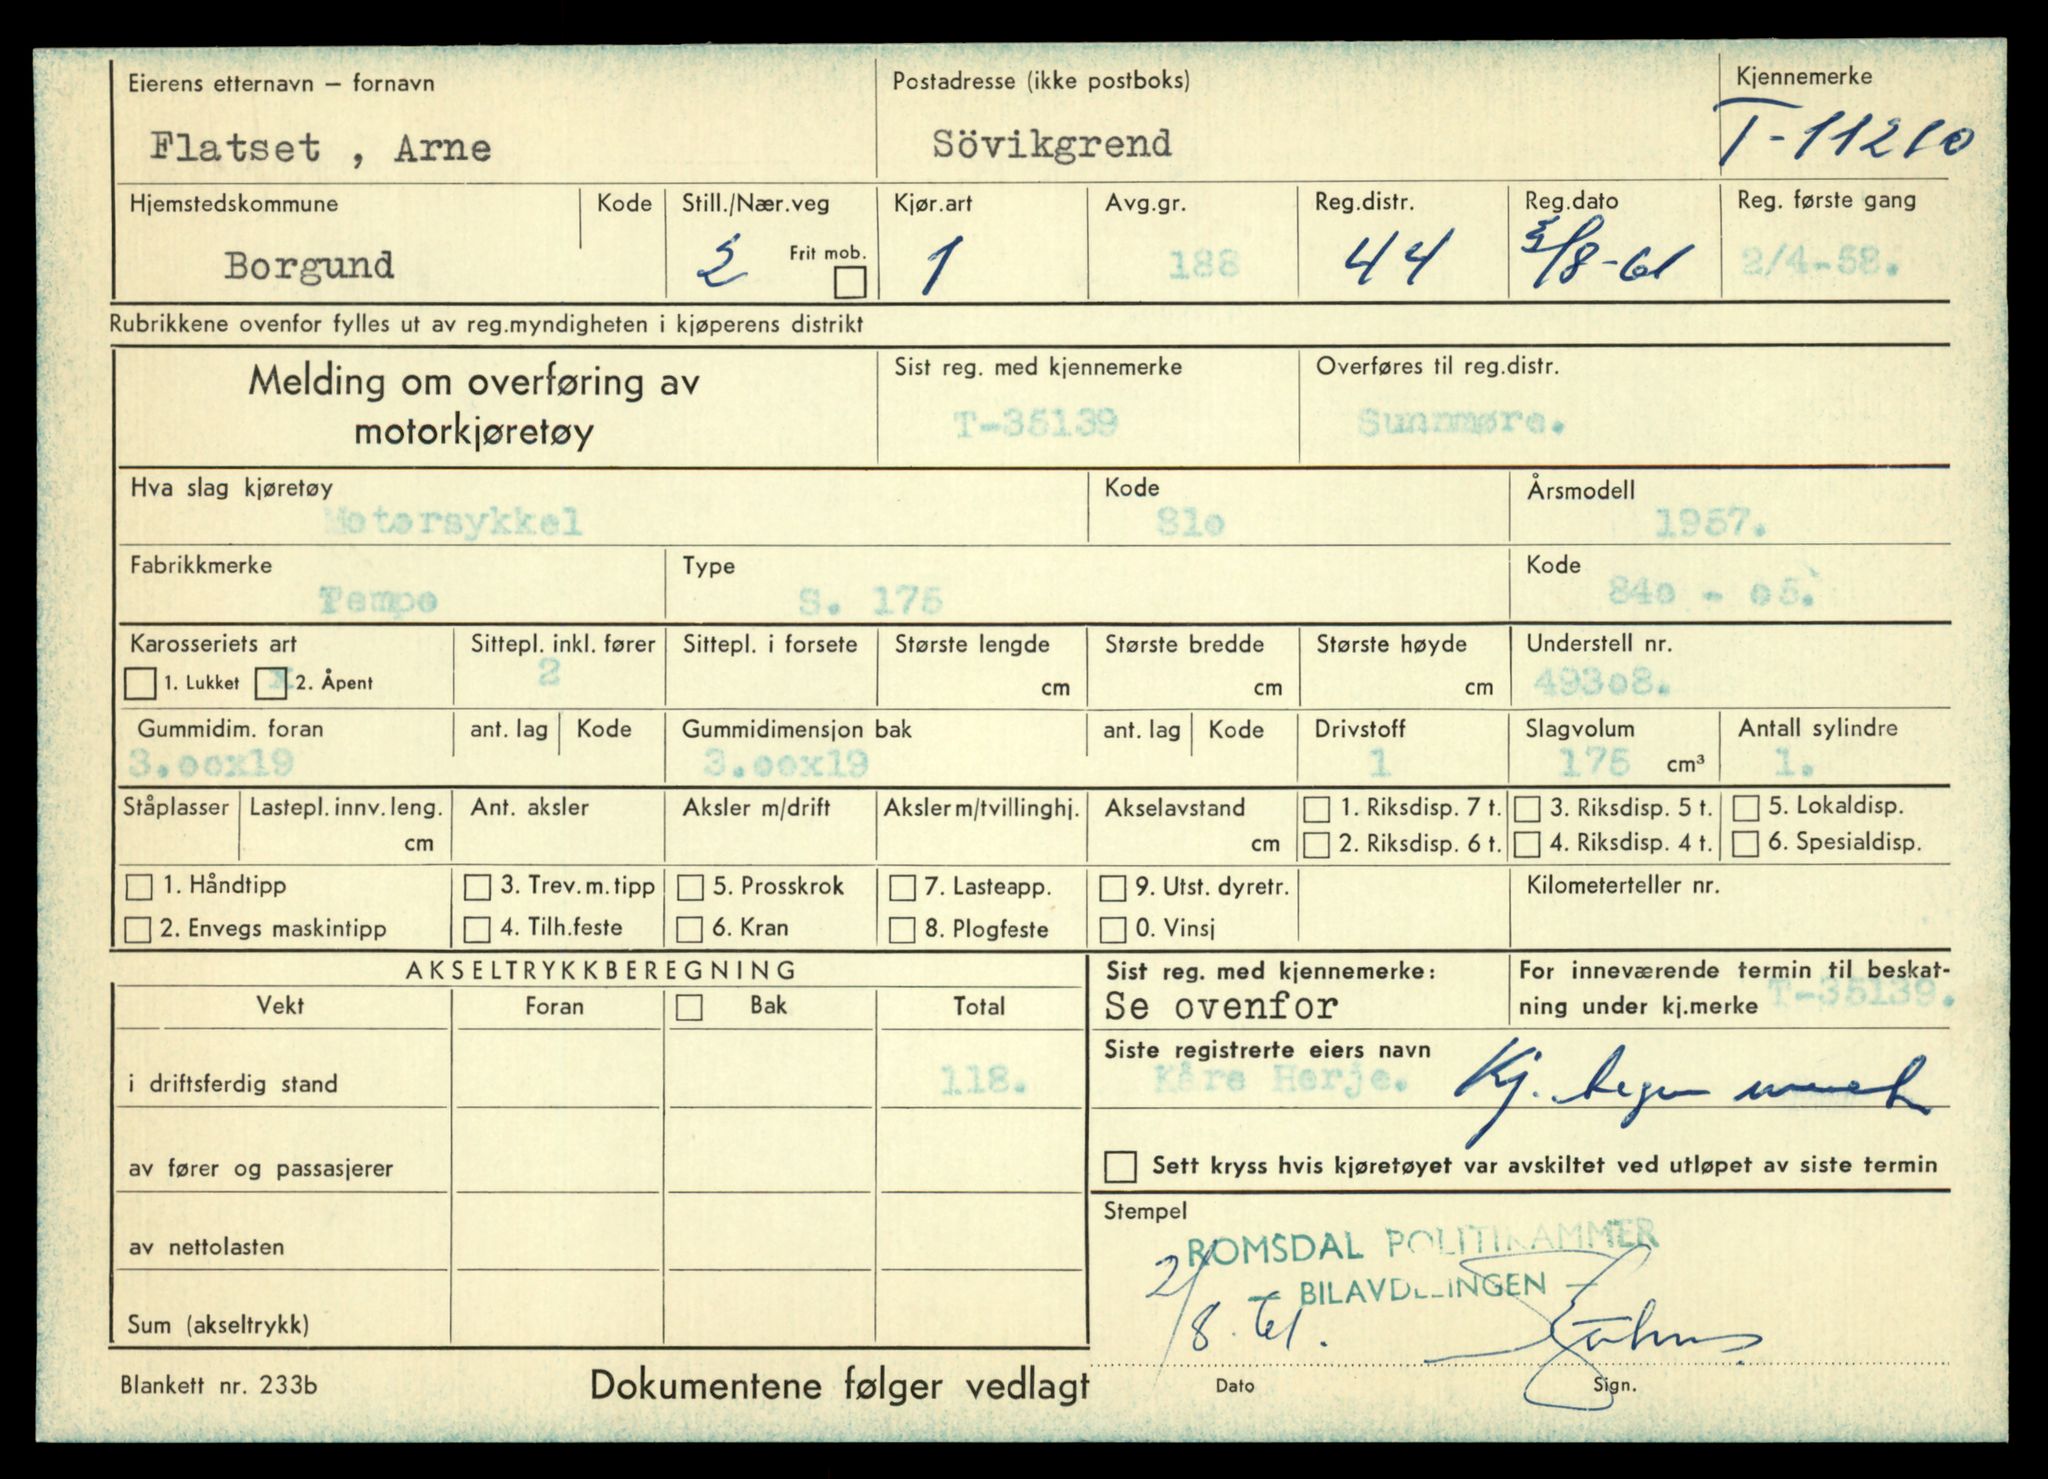 Eierens etternavn – fornavn
Postadresse (ikke postboks)
Kjennemerke
Flatset , Arne
Sövikgrend
T-11210
Hjemstedskommune
Kode
Still./Nær.veg
Kjør.art
Avg.gr.
Reg.distr.
Reg.dato
Reg. første gang
Borgund
2
Frit mob.
1
188
44
/8-61
2/4-58.
Rubrikkene ovenfor fylles ut av reg.myndigheten i kjøperens distrikt
Melding om overføring av
motorkjøretøy
Sist reg. med kjennemerke
Overføres til reg.distr.
T-35139
Sunnmøre.
Hva slag kjøretøy
Kode
Årsmodell
Motorsykkel
81o
1957.
Fabrikkmerke
Type
Kode
Tempo
S. 175
84o - o5.
Karosseriets art
Sittepl. inkl. fører
Sittepl. i forsete
Største lengde
Største bredde
Største høyde
Understell nr.
1. Lukket
x
2. Åpent
2
cm
cm
cm
493o8.
Gummidim. foran
ant. lag
Kode
Gummidimensjon bak
ant. lag
Kode
Drivstoff
Slagvolum
Antall sylindre
3.oox19
3.oox19
1
175 cm³
1.
Ståplasser
Lastepl. innv. leng.
Ant. aksler
Aksler m/drift
Aksler m/tvillinghj.
Akselavstand
1. Riksdisp. 7 t.
3. Riksdisp. 5 t.
5. Lokaldisp.
cm
cm
2. Riksdisp. 6 t.
4. Riksdisp. 4 t.
6. Spesialdisp.
1. Håndtipp
3. Trev. m. tipp
5. Prosskrok
7. Lasteapp.
9. Utst. dyretr.
Kilometerteller nr.
2. Envegs maskintipp
4. Tilh.feste
6. Kran
8. Plogfeste
0. Vinsj
AKSELTRYKKBEREGNING
Sist reg. med kjennemerke:
For inneværende termin til beskat-
Vekt
Foran
Bak
Total
Se ovenfor
ning under kj.merke T-35139.
Siste registrerte eiers navn
i driftsferdig stand
118.
Kåre Herje.
Kj.
av fører og passasjerer
Sett kryss hvis kjøretøyet var avskiltet ved utløpet av siste termin
Stempel
av nettolasten
ROMSDAL POLITIKAMMER
— BILAVDELINGEN —
2/8. 61.
Sum (akseltrykk)
Blankett nr. 233b
Dokumentene følger vedlagt
Dato
Sign.